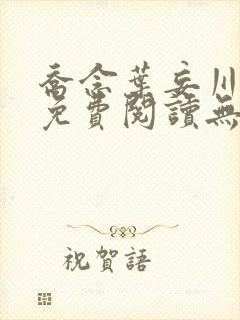 喬念葉妄川
免費閱讀無
祝賀語